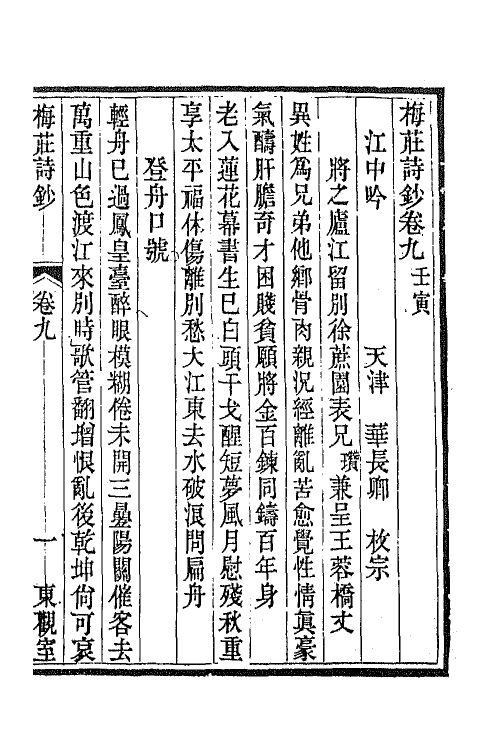 梅莊詩鈔卷九 壬寅
天津 華長卿 枚宗
江中吟
將之廬江留別徐蔗園表兄瓚兼呈王蓉橋丈
異姓爲兄弟他鄉骨肉親況經離亂苦愈覺性情眞豪
氣醻肝膽奇才困賤貧願將金百鍊同鑄百年身
老入蓮花幕書生已白頭干戈醒短夢風月慰殘秋重
享太平福休傷離別愁大江東去水破浪問扁舟
登舟口號
輕舟已過鳳皇臺醉眼模糊倦未開三疊陽關催客去
萬重山色渡江來別時歌管翻增恨亂後乾坤尙可哀
梅莊詩鈔 卷九 一 東觀室